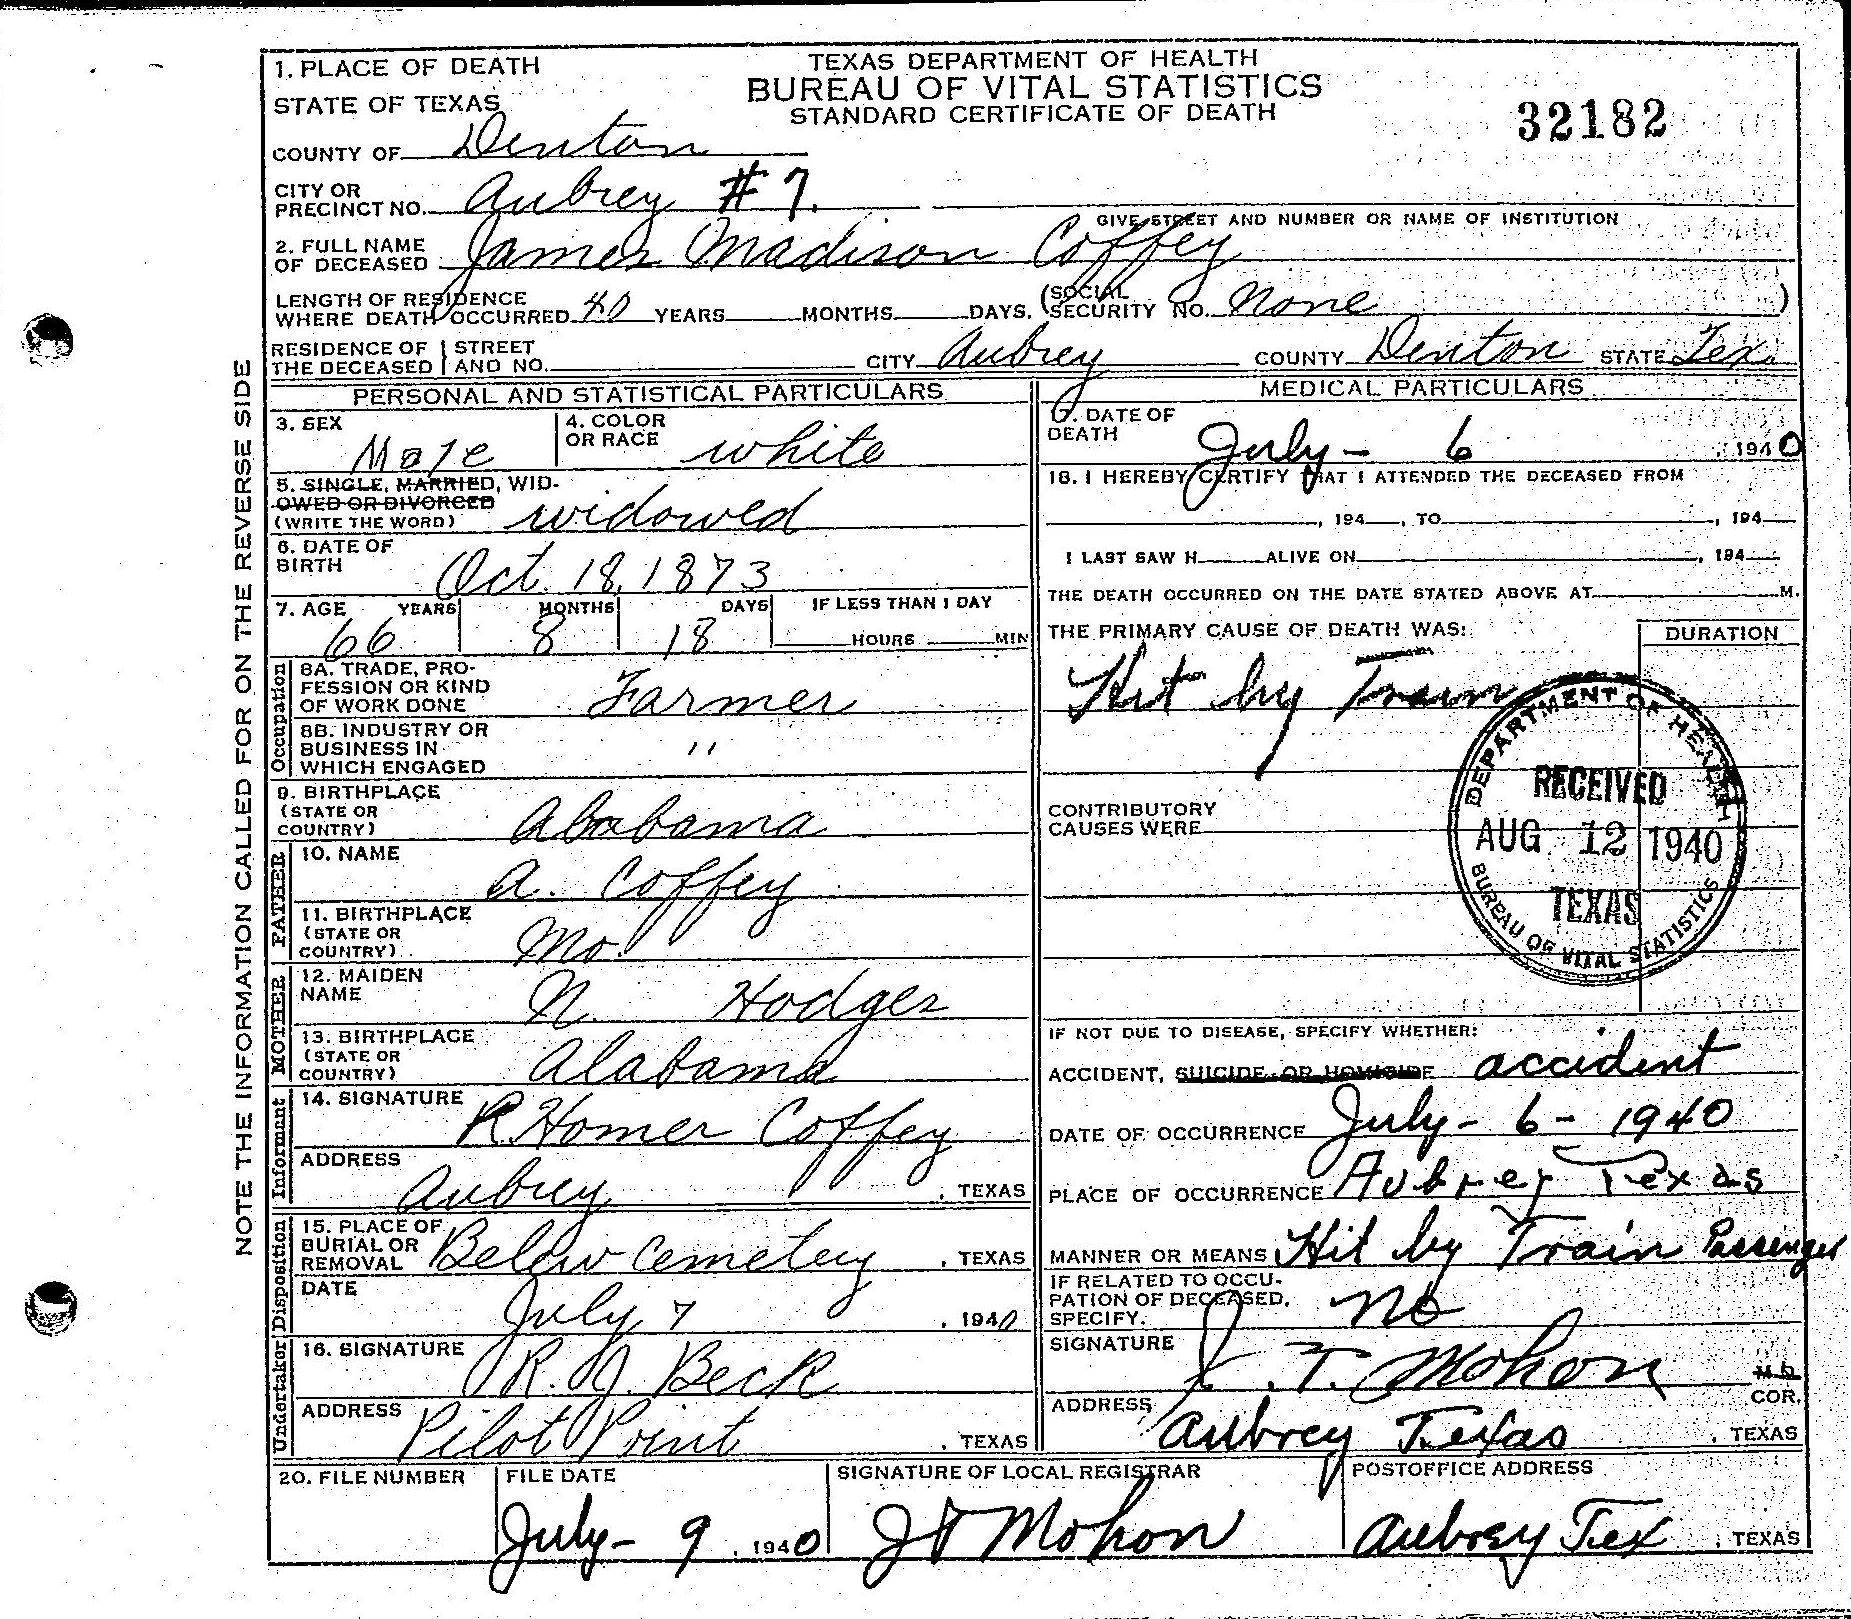 1. PLACE OF DEATH
STATE OF TEXAS
TEXAS DEPARTMENT OF HEALTH
BUREAU OF VITAL STATISTICS
STANDARD CERTIFICATE OF DEATH
32182
COUNTY OF Denton
CITY OR PRECINCT NO. Aubrey #7.
GIVE STREET AND NUMBER OR NAME OF INSTITUTION
2. FULL NAME OF DECEASED James Madison Coffey
LENGTH OF RESIDENCE WHERE DEATH OCCURRED 40 YEARS MONTHS DAYS. (SOCIAL SECURITY NO. None )
RESIDENCE OF THE DECEASED STREET AND NO. CITY Aubrey COUNTY Denton STATE Tex.
NOTE THE INFORMATION CALLED FOR ON THE REVERSE SIDE
PERSONAL AND STATISTICAL PARTICULARS
3. SEX Male
4. COLOR OR RACE white
5. SINGLE, MARRIED, WID-
OWED OR DIVORCED
(WRITE THE WORD) widowed
6. DATE OF BIRTH Oct. 18, 1873
7. AGE YEARS MONTHS DAYS IF LESS THAN 1 DAY
66 8 18 HOURS MIN
Occupation
8A. TRADE, PRO-
FESSION OR KIND
OF WORK DONE Farmer
8B. INDUSTRY OR
BUSINESS IN
WHICH ENGAGED "
9. BIRTHPLACE
(STATE OR
COUNTRY) Alabama
FATHER
10. NAME A. Coffey
11. BIRTHPLACE
(STATE OR
COUNTRY) Mo.
MOTHER
12. MAIDEN
NAME N. Hodges
13. BIRTHPLACE
(STATE OR
COUNTRY) Alabama
Informant
14. SIGNATURE R. Homer Coffey
ADDRESS Aubrey , TEXAS
Disposition
15. PLACE OF
BURIAL OR
REMOVAL Belew Cemetery , TEXAS
DATE July 7 , 1940
Undertaker
16. SIGNATURE R. J. Beck
ADDRESS Pilot Point , TEXAS
MEDICAL PARTICULARS
17. DATE OF
DEATH July - 6 , 1940
18. I HEREBY CERTIFY THAT I ATTENDED THE DECEASED FROM
, 194 , TO , 194
I LAST SAW H ALIVE ON , 194
THE DEATH OCCURRED ON THE DATE STATED ABOVE AT M.
THE PRIMARY CAUSE OF DEATH WAS: DURATION
Hit by Train
CONTRIBUTORY
CAUSES WERE
DEPARTMENT OF HEALTH
RECEIVED
AUG 12 1940
TEXAS
BUREAU OF VITAL STATISTICS
IF NOT DUE TO DISEASE, SPECIFY WHETHER:
ACCIDENT, SUICIDE OR HOMICIDE accident
DATE OF OCCURRENCE July - 6 - 1940
PLACE OF OCCURRENCE Aubrey Texas
MANNER OR MEANS Hit by Train Passenger
IF RELATED TO OCCU-
PATION OF DECEASED,
SPECIFY. No
SIGNATURE J. T. Mohon M.D.
COR.
ADDRESS Aubrey Texas , TEXAS
20. FILE NUMBER
FILE DATE July - 9 , 1940
SIGNATURE OF LOCAL REGISTRAR JT Mohon
POSTOFFICE ADDRESS Aubrey Tex , TEXAS